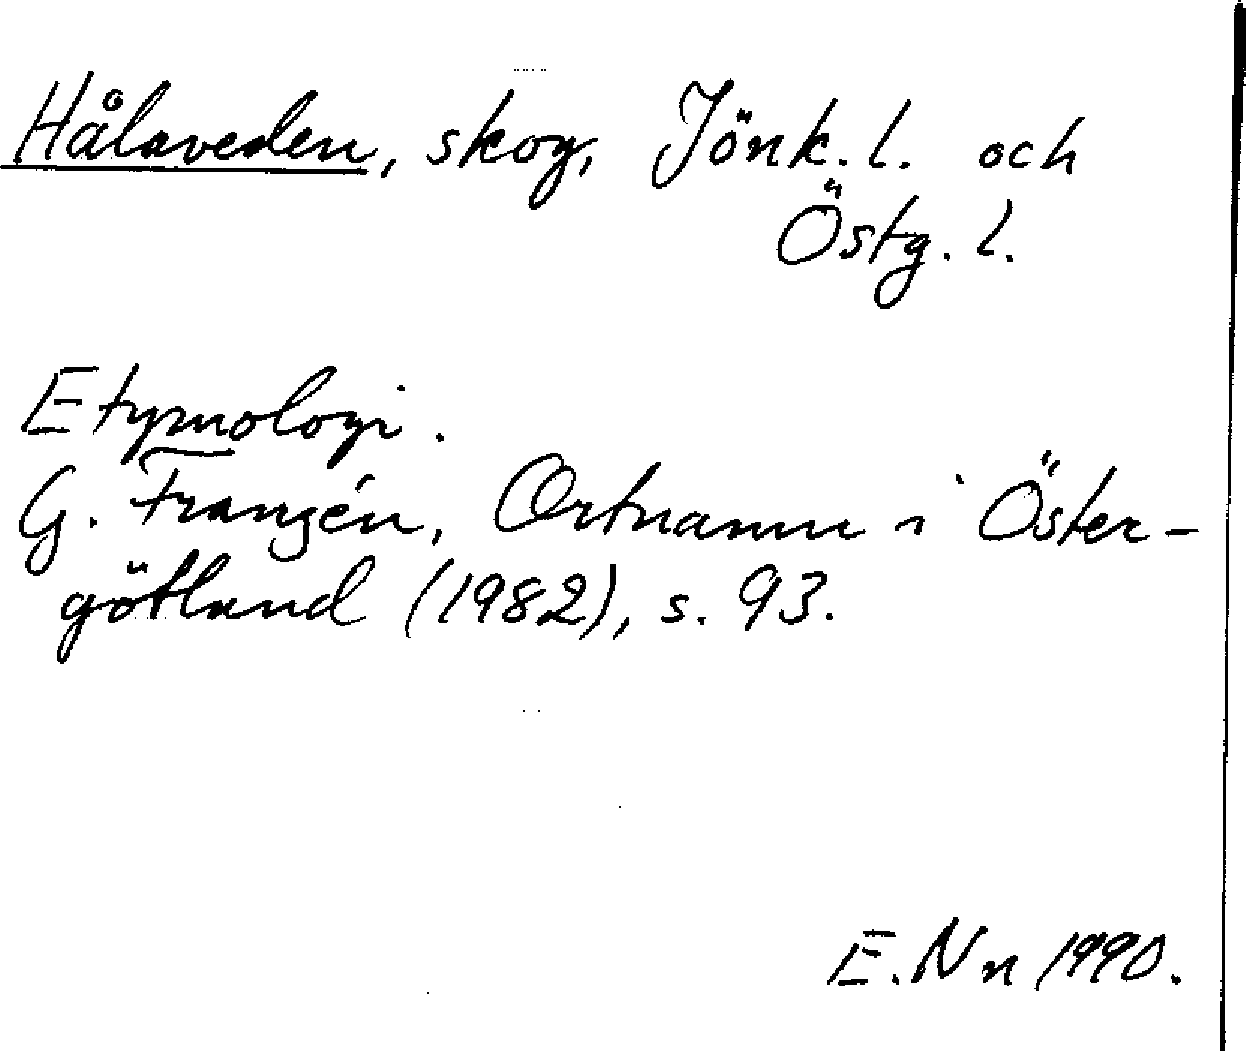 Hålaveden, skog, Jönk. l. och
Östg. l.
Etymologi.
G. Franzén, Ortnamn i Öster-
götland (1982), s. 93.
E. Nn 1990.